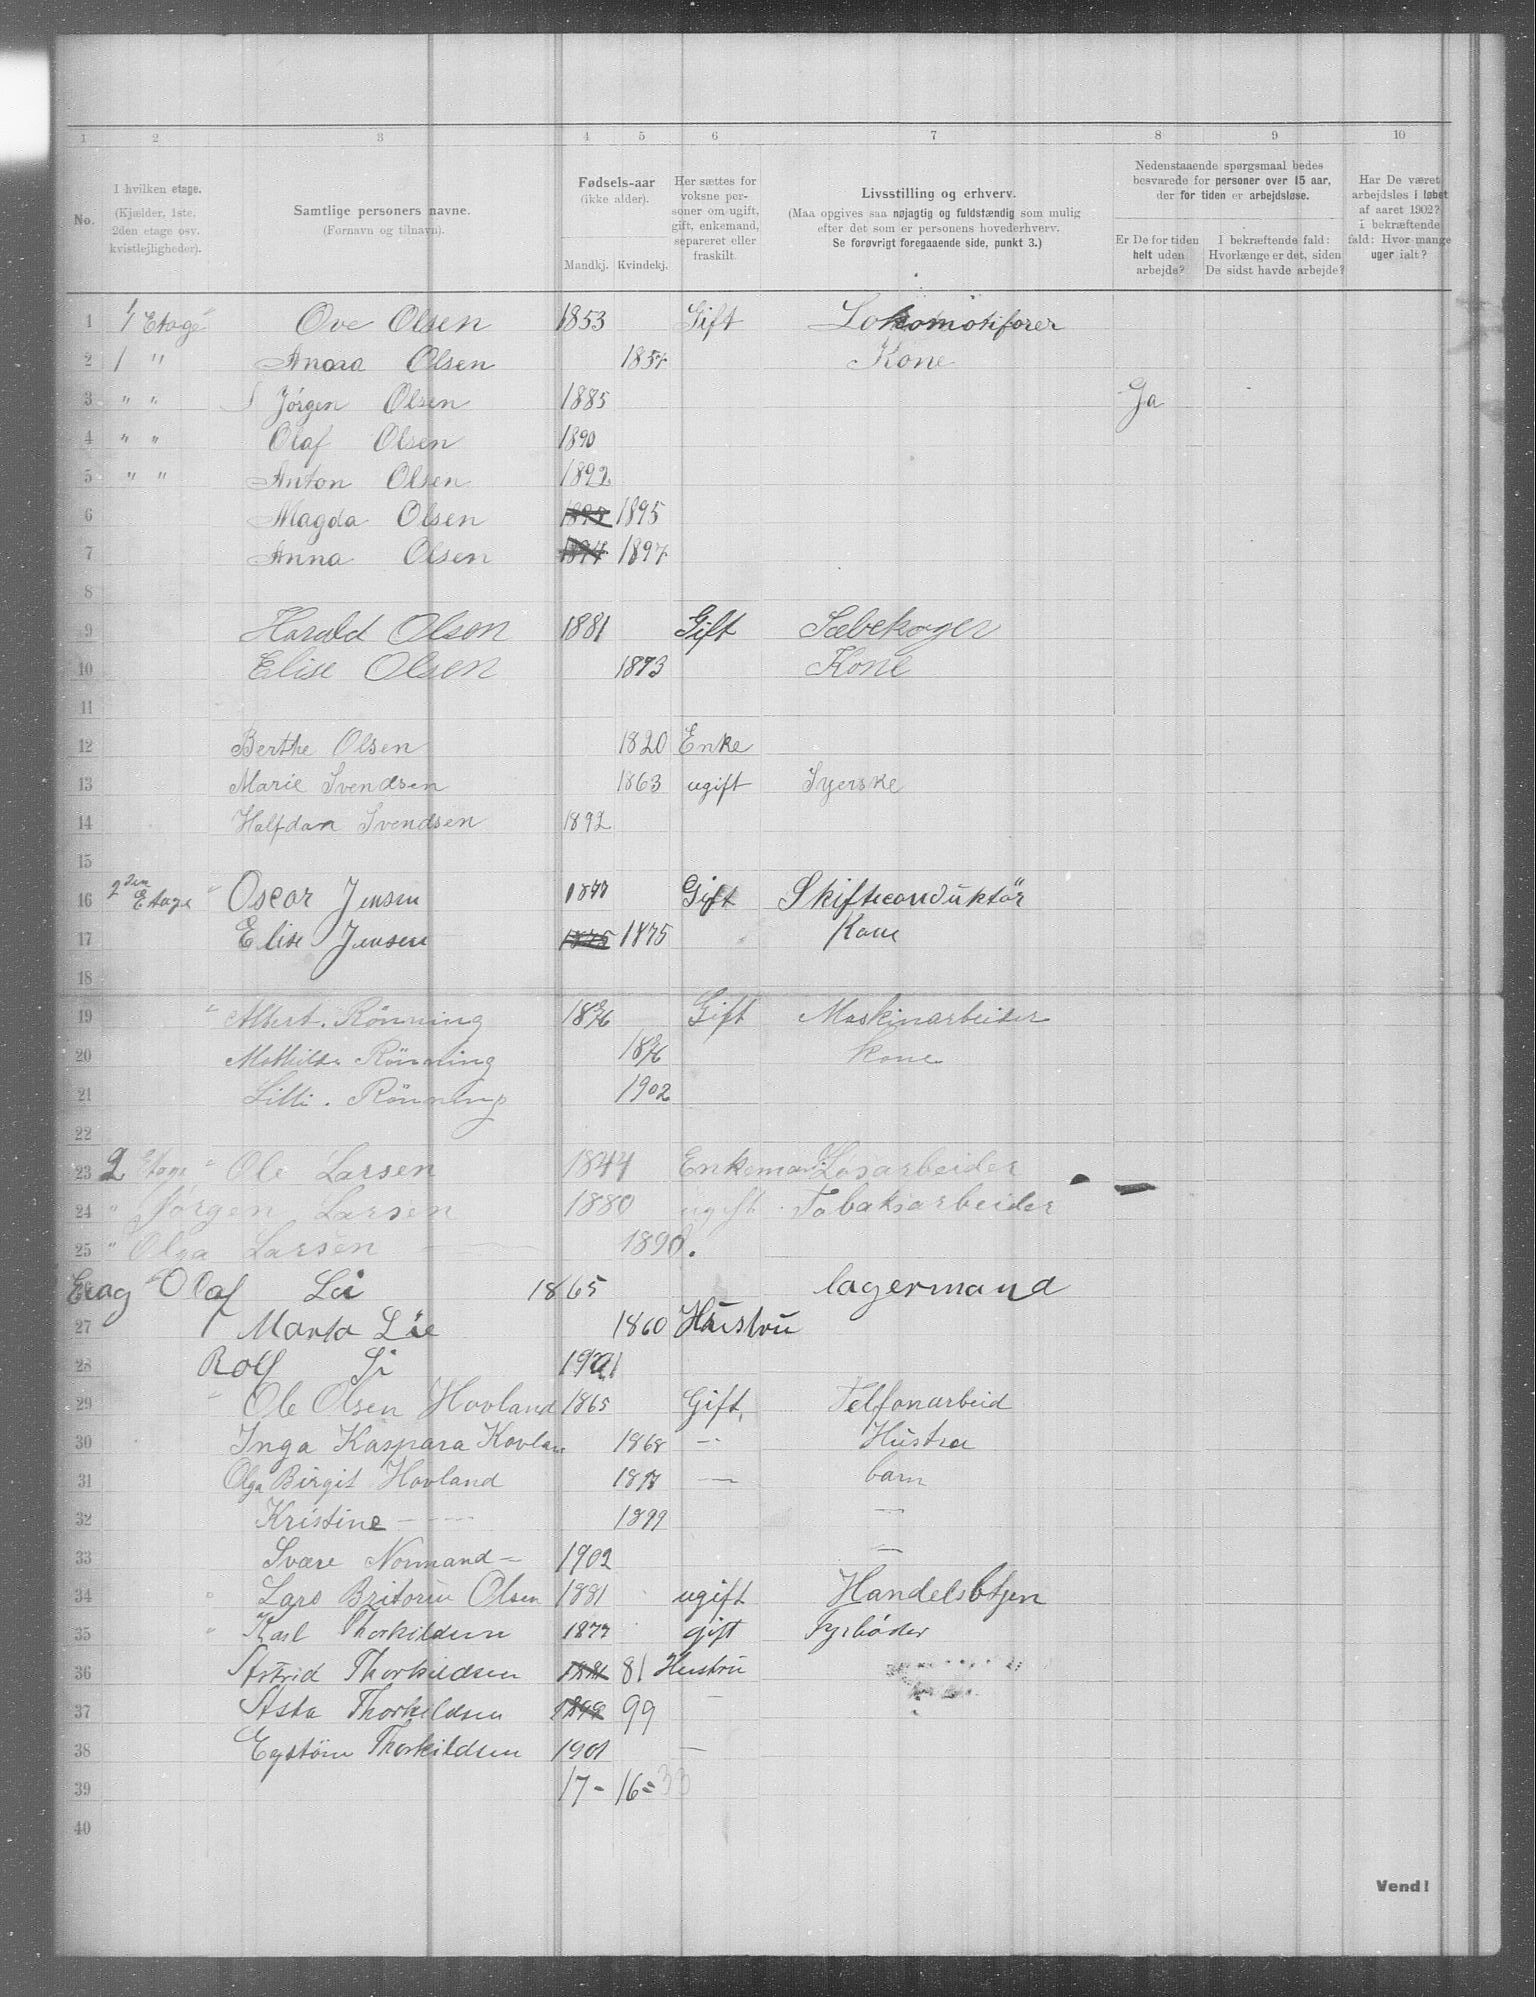 1 2 3 4 5 6 7 8 9 10
No.
I hvilken etage.
(Kjælder, 1ste,
2den etage osv.
kvistleiligheder).
Samtlige personers navne.
(Fornavn og tilnavn).
Fødsels-aar
(ikke alder).
Mandkj. Kvindekj.
Her sættes for
voksne per-
soner om ugift,
gift, enkemand,
separeret eller
fraskilt.
Livsstilling og erhverv.
(Maa opgives saa nøjagtig og fuldstændig som mulig
efter det som er personens hovederhverv.
Se forøvrigt foregaaende side, punkt 3.)
Nedenstaaende spørgsmaal bedes
besvarede for personer over 15 aar,
der for tiden er arbejdsløse.
Er De for tiden
helt uden
arbejde?
I bekræftende fald:
Hvorlænge er det, siden
De sidst havde arbejde?
Har De været
arbejdsløs i løbet
af aaret 1902?
i bekræftende
fald: Hvor mange
uger ialt?
1 1 Etage Ove Olsen 1853 Gift Lokomotiforer
2 1 " Anna Olsen 1857 Kone
3 " " Jörgen Olsen 1885 Ja
4 " " Olaf Olsen 1890
5 " " Anton Olsen 1892
6 Magda Olsen 1895 1895
7 Anna Olsen 1897 1897
8
9 Harald Olson 1881 Gift Sæbekoger
10 Elise Olsen 1873 Kone
11
12 Berthe Olsen 1820 Enke
13 Marie Svendsen 1863 ugift Syerske
14 Halfdan Svendsen 1892
15
16 2den Etage " Oscar Jensen 1877 Gift Skifteconduktör
17 Elise Jensen 1875 1875 Kone
18
19 " Albert. Rönning 1876 Gift Maskinarbeider
20 Mathilde Rönning 1876 Kone
21 Lilli. Rönning 1902
22
23 2 Etage " Ole Larsen 1844 Enkeman Løsarbeider
24 " Jørgen Larsen 1880 ugift Tobaksarbeider
25 " Olga Larsen 1890.
Etag " Olaf Li 1865 lagermand
27 Marta Lie 1860 Hustru
28 Rolf Li 1901
29 " Ole Olsen Hovland 1865 Gift, Telfonarbeid
30 Inga Kaspara Hovlan 1868 - Hustra
31 Olga Birgit Hovland 1897 — barn
32 Kristine — 1899 —
33 Svære Normand — 1902 —
34 " Lars Olsen 1881 ugift Handelsbtjen
35 " Karl Thorkildsen 1877 gift Fyrbøder
36 Astrid Thorkildsen 1881 81 Hustru
37 Asta Thorkildsen 1899 99 —
38 Thorkildsen 1901 —
39 17 - 16 = 33
40
Vend!